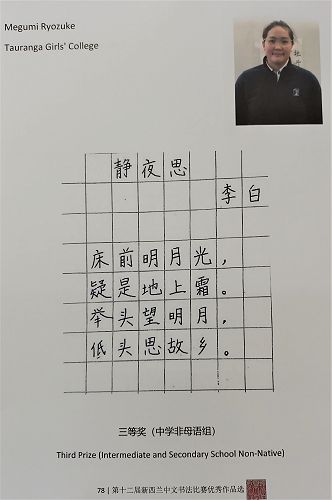 Megumi Ryozuke
Tauranga Girls' College
静夜思
李白
床前明月光，
疑是地上霜。
举头望明月，
低头思故乡。
三等奖（中学非母语组）
Third Prize (Intermediate and Secondary School Non-Native)
78 | 第十二届新西兰中文书法比赛优秀作品选